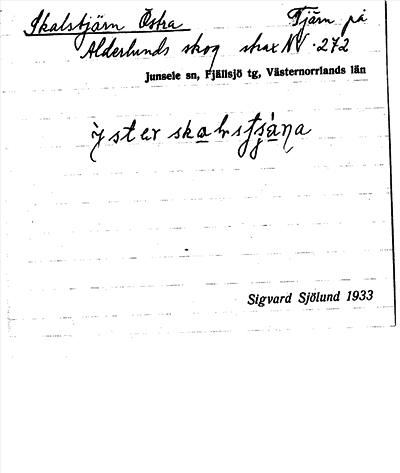 Skalstjärn Östra Tjärn på
Alderlunds skog strax NV. 272
Junsele sn, Fjällsjö tg, Västernorrlands län
Sigvard Sjölund 1933